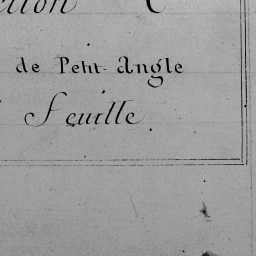 de Petit-Angle
Feuille